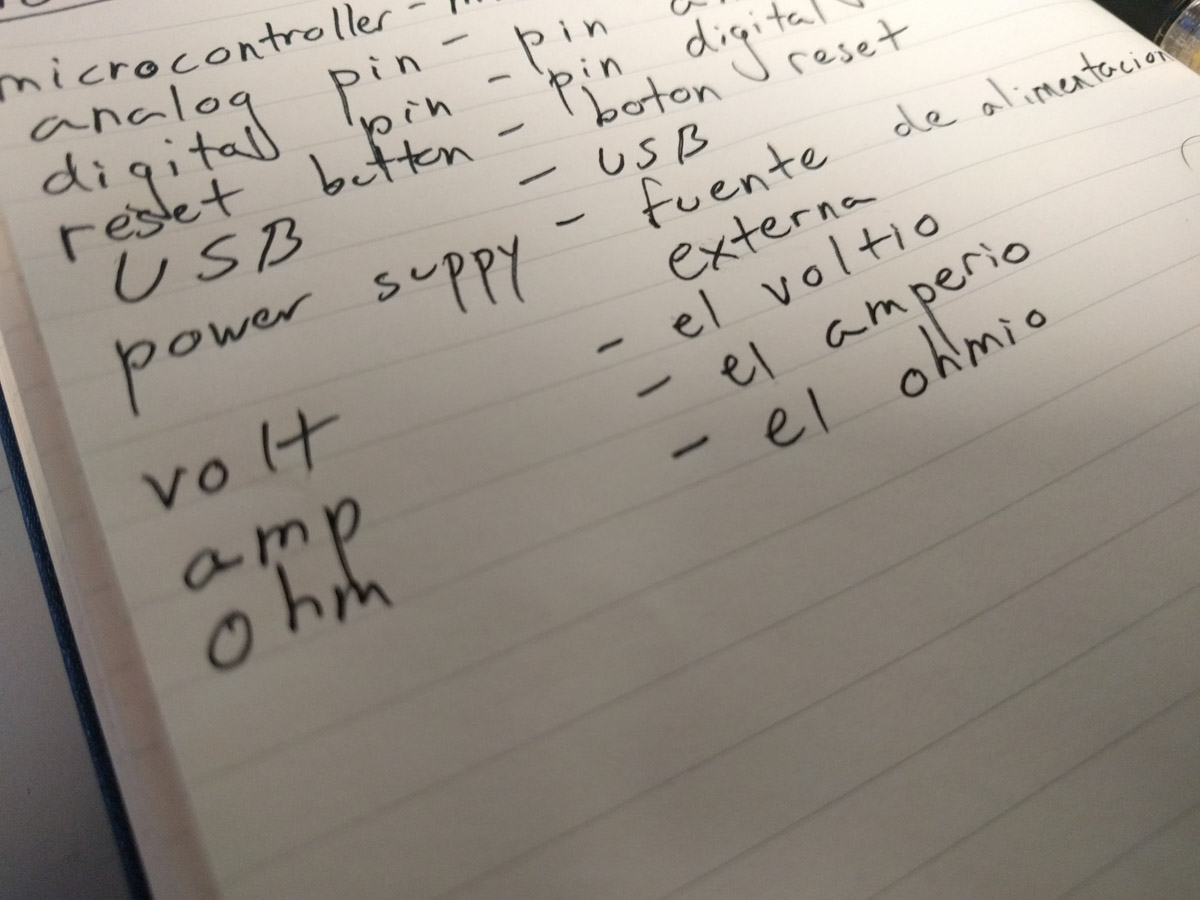 microcontroller -
analog pin - pin
digital pin - pin digital
reset button - boton reset
USB - USB
power suppy - fuente de alimentacion
externa
volt - el voltio
amp - el amperio
ohm - el ohmio